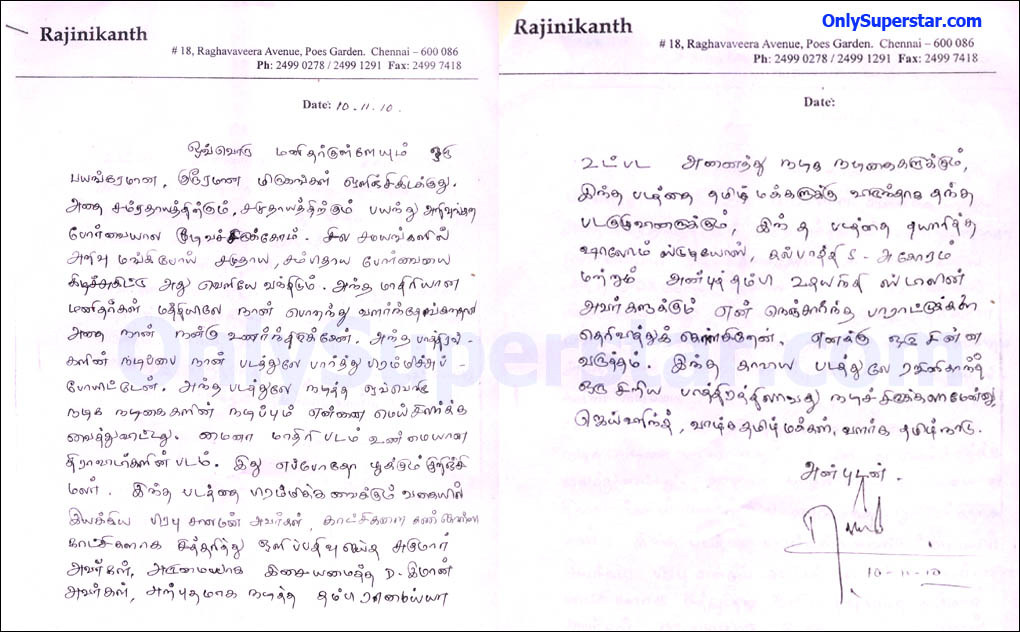 Rajinikanth
# 18, Raghavaveera Avenue, Poes Garden. Chennai – 600 086
Ph: 2499 0278 / 2499 1291 Fax: 2499 7418
Date: 10.11.10.
ஒவ்வொரு மனிதர்குள்ளேயும் ஒரு
பயங்கரமான, குரூரமான மிருகங்கள் ஒளிஞ்சிகிடக்குது.
அதை சம்ரதாயத்திற்கும், சமுதாயத்திற்கும் பயந்து அறிவுங்கற
போர்வையால மூடிவச்சிருக்கோம். சில சமயங்களில்
அறிவு மங்கிபோய் சமுதாய, சம்பிரதாய போர்வையை
கிழிச்சுகிட்டு அது வெளியே வந்திடும். அந்த மாதிரியான
மனிதர்கள் மத்தியிலே நான் பொறந்து வளர்ந்தேங்கறதால
அதை நான் நன்கு உணர்ந்திருக்கேன். அந்த பாத்திரங்-
களின் நடிப்பை நான் படத்துலே பார்த்து பிரம்மிச்சுப்-
போயிட்டேன். அந்த படத்துலே நடித்த ஒவ்வொரு
நடிக நடிகைகளின் நடிப்பும் என்னை மெய்சிலிர்க்க
வைத்துவிட்டது. மைனா மாதிரி படம் உண்மையான
திராவிடர்களின் படம். இது எப்போதோ பூக்கும் குறிஞ்சி
மலர். இந்த படத்தை பிரம்மிக்க வைக்கும் வகையில்
இயக்கிய பிரபு சாலமன் அவர்கள், காட்சிகளை கண் கொள்ளா
காட்சிகளாக சித்தரித்து ஒளிப்பதிவு செய்த சுகுமார்
அவர்கள், அருமையாக இசையமைத்த D. இமான்
அவர்கள், அற்புதமாக நடித்த தம்பி ராமைய்யா
OnlySuperstar.com
Rajinikanth
# 18, Raghavaveera Avenue, Poes Garden. Chennai – 600 086
Ph: 2499 0278 / 2499 1291 Fax: 2499 7418
Date:
உட்பட அனைத்து நடிக நடிகைகளுக்கும்,
இந்த படத்தை தமிழ் மக்களுக்கு விருந்தாக தந்த
படகுழுவினருக்கும், இந்த படத்தை தயாரித்த
ஷாலோம் ஸ்டுடியோஸ், கல்பாத்தி S. அகோரம்
மற்றும் அன்புத்தம்பி உதயநிதி ஸ்டாலின்
அவர்களுக்கும் என் நெஞ்சார்ந்த பாராட்டுக்களை
தெரிவித்துக் கொள்கிறேன். எனக்கு ஒரு சின்ன
வருத்தம். இந்த காவிய படத்துலே ரஜினிகாந்த்
ஒரு சிறிய பாத்திரத்திலாவது நடிச்சிருக்கலாமேன்னு.
ஜெய்ஹிந்த், வாழ்க தமிழ் மக்கள், வளர்க தமிழ் நாடு.
அன்புடன்.
10-11-10
OnlySuperstar.com